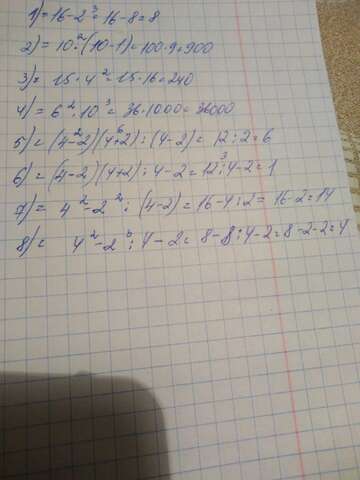 1) = 16-2³ = 16-8 = 8
2) = 10²·(10-1) = 100·9 = 900
3) = 15·4² = 15·16 = 240
4) = 6²·10³ = 36·1000 = 36000
5) = (4-2)(4+2):(4-2) = 12:2 = 6
6) = (4-2)(4+2):4-2 = 12:4-2 = 1
7) = 4²-2²:(4-2) = 16-4:2 = 16-2 = 14
8) = 4²-2³:4-2 = 8-8:4-2 = 8-2-2 = 4